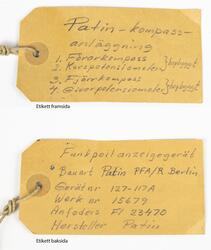 Patin - kompass-
anläggning
1. Förarkompass
2. Kurspotentiometer
3. Fjärrkompass
4. Giverpotentiometer
Etikett framsida
"Funkpeilanzeigegerät
" Bauart Patin PFA/R Berlin
Gerätnr 127-117A
Werk nr 15679
Anforders Fl 23470
Hersteller Patin
Etikett baksida